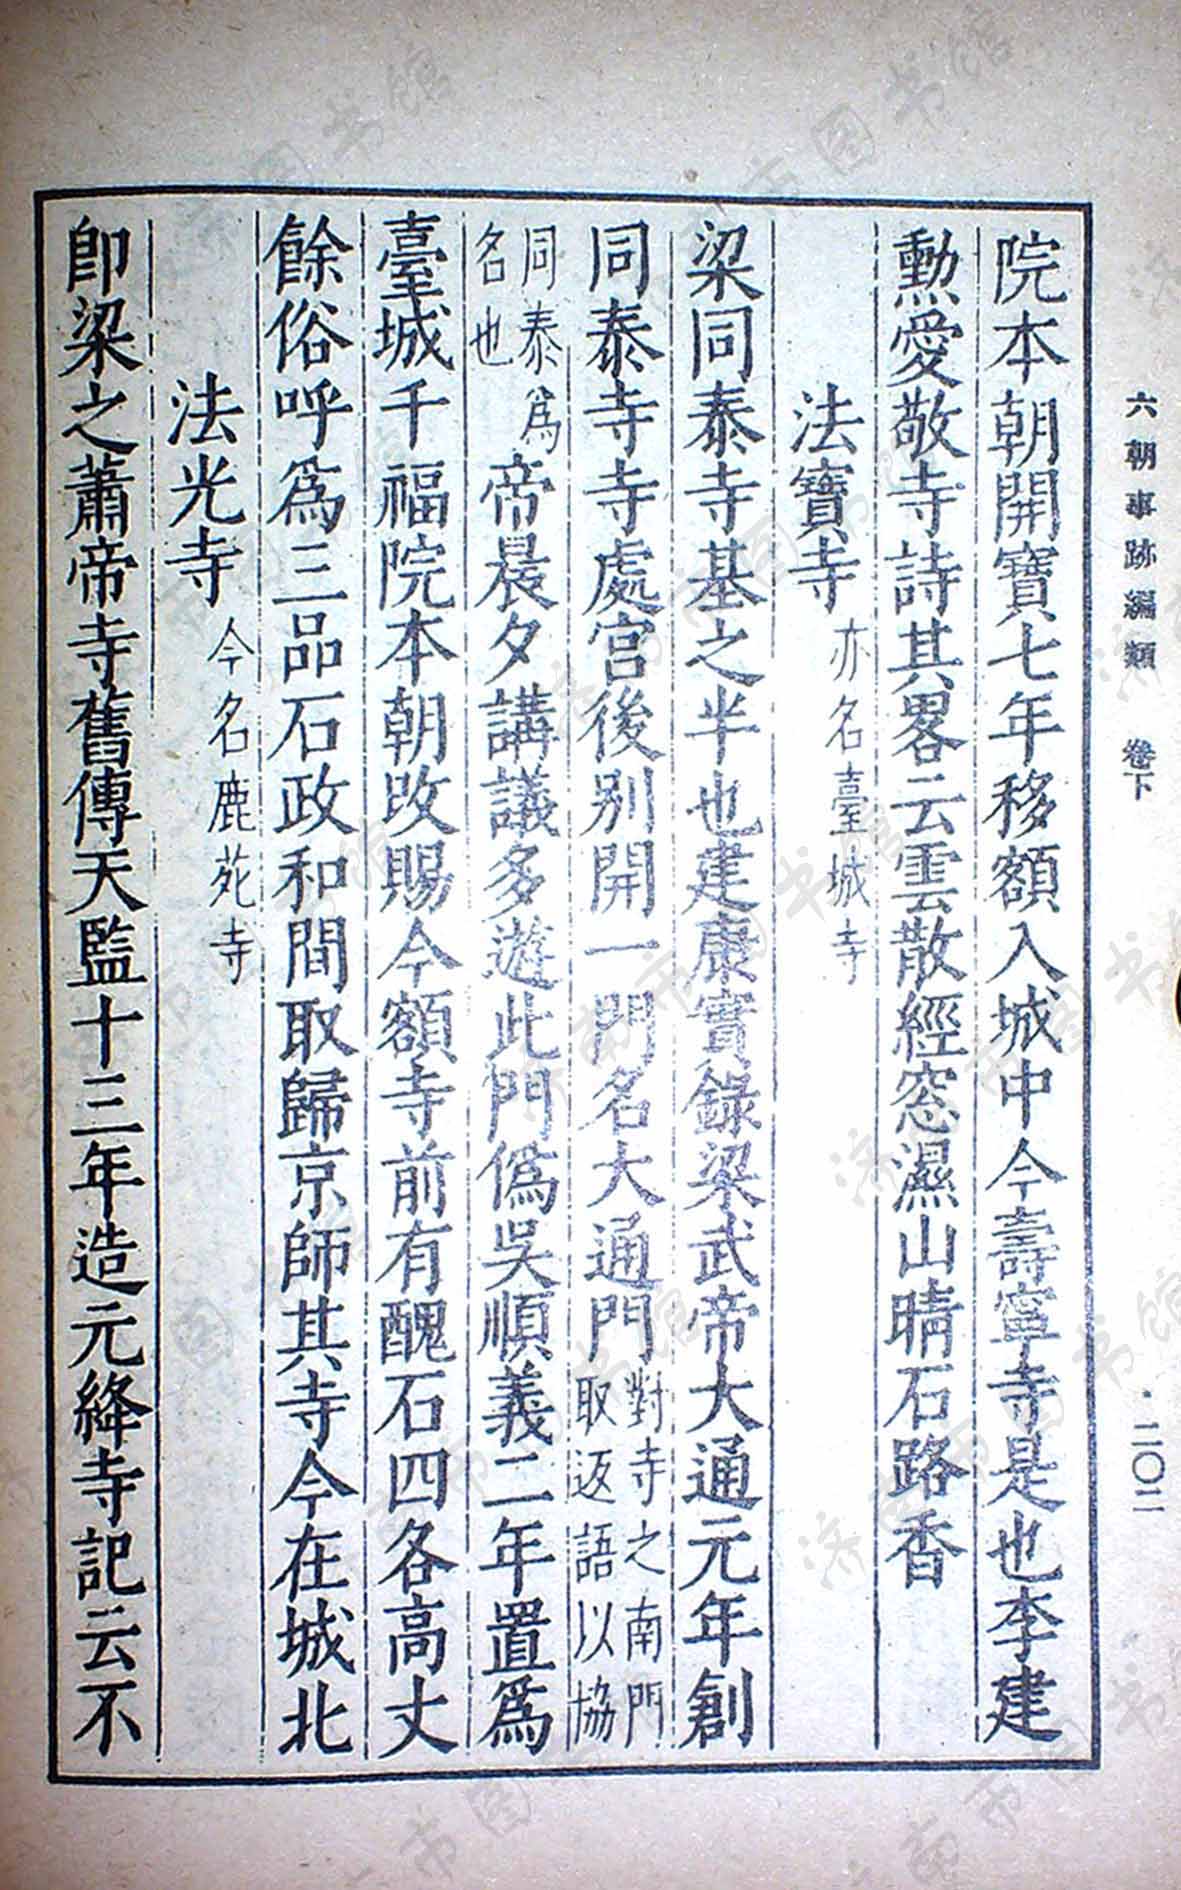 六朝事跡編類 卷下 ·二〇二
院本朝開寶七年移額入城中今壽寧寺是也李建
勳愛敬寺詩其畧云雲散經窓濕山晴石路香
法寶寺亦名臺城寺
梁同泰寺基之半也建康實錄梁武帝大通元年創
同泰寺寺處宫後别開一門名大通門對寺之南門取返語以協
同泰爲名也帝晨夕講議多遊此門僞吳順義二年置爲
臺城千福院本朝改賜今額寺前有醜石四各高丈
餘俗呼爲三品石政和間取歸京師其寺今在城北
法光寺今名鹿苑寺
卽梁之蕭帝寺舊傳天監十三年造元絳寺記云不
济南市图书馆